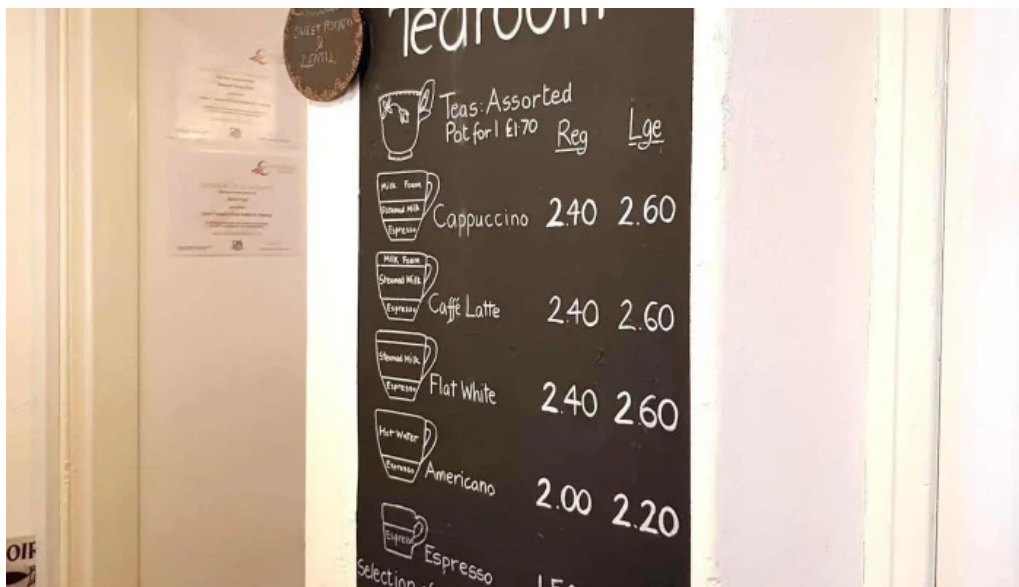 SWEET POTATO
&
LENTIL
Tearoom
Teas: Assorted
Pot for 1 £1.70 Reg Lge
Milk Foam
Steamed Milk
Espresso
Cappuccino 2.40 2.60
Milk Foam
Steamed Milk
Espresso
Caffé Latte 2.40 2.60
Steamed Milk
Espresso
Flat White 2.40 2.60
Hot Water
Espresso
Americano 2.00 2.20
Espresso
Espresso
Selection